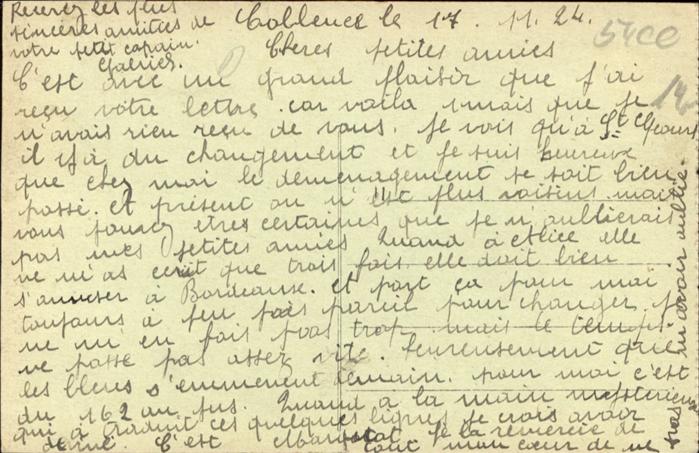 Coblence le 17. 11. 24.
Chères petites amies
C'est avec un grand plaisir que j'ai
reçu votre lettre. car voila 1 mois que je
n'avais rien reçu de vous. Je vois qu'à St
il y à du changement et je suis heureux
que chez moi le demenagement se soit bien
passé. et présent on n'est plus voisins mais
vous pouvez etres certaines que je n'oublierais
pas mes petites amies Quand à Alice elle
ne m'as ecrit que trois fois elle doit bien
s'amuser à Bordeause. et part ça pour moi
toujours à peu près pareil pour changer. je
ne m'en fais pas trop mais le temps
ne passe pas assez vite. heureusement que
les bleus s'emmenent demain. pour moi c'est
du 162 au jus. Quand a la main mysterieuse
qui à traduit ces quelques lignes je crois avoir
deviné. C'est je la remercie de
tout mon cœur de ne
pas m'avoir oublié.
Recevez les plus
sincères amitiés de
votre petit copain.
54CO
14